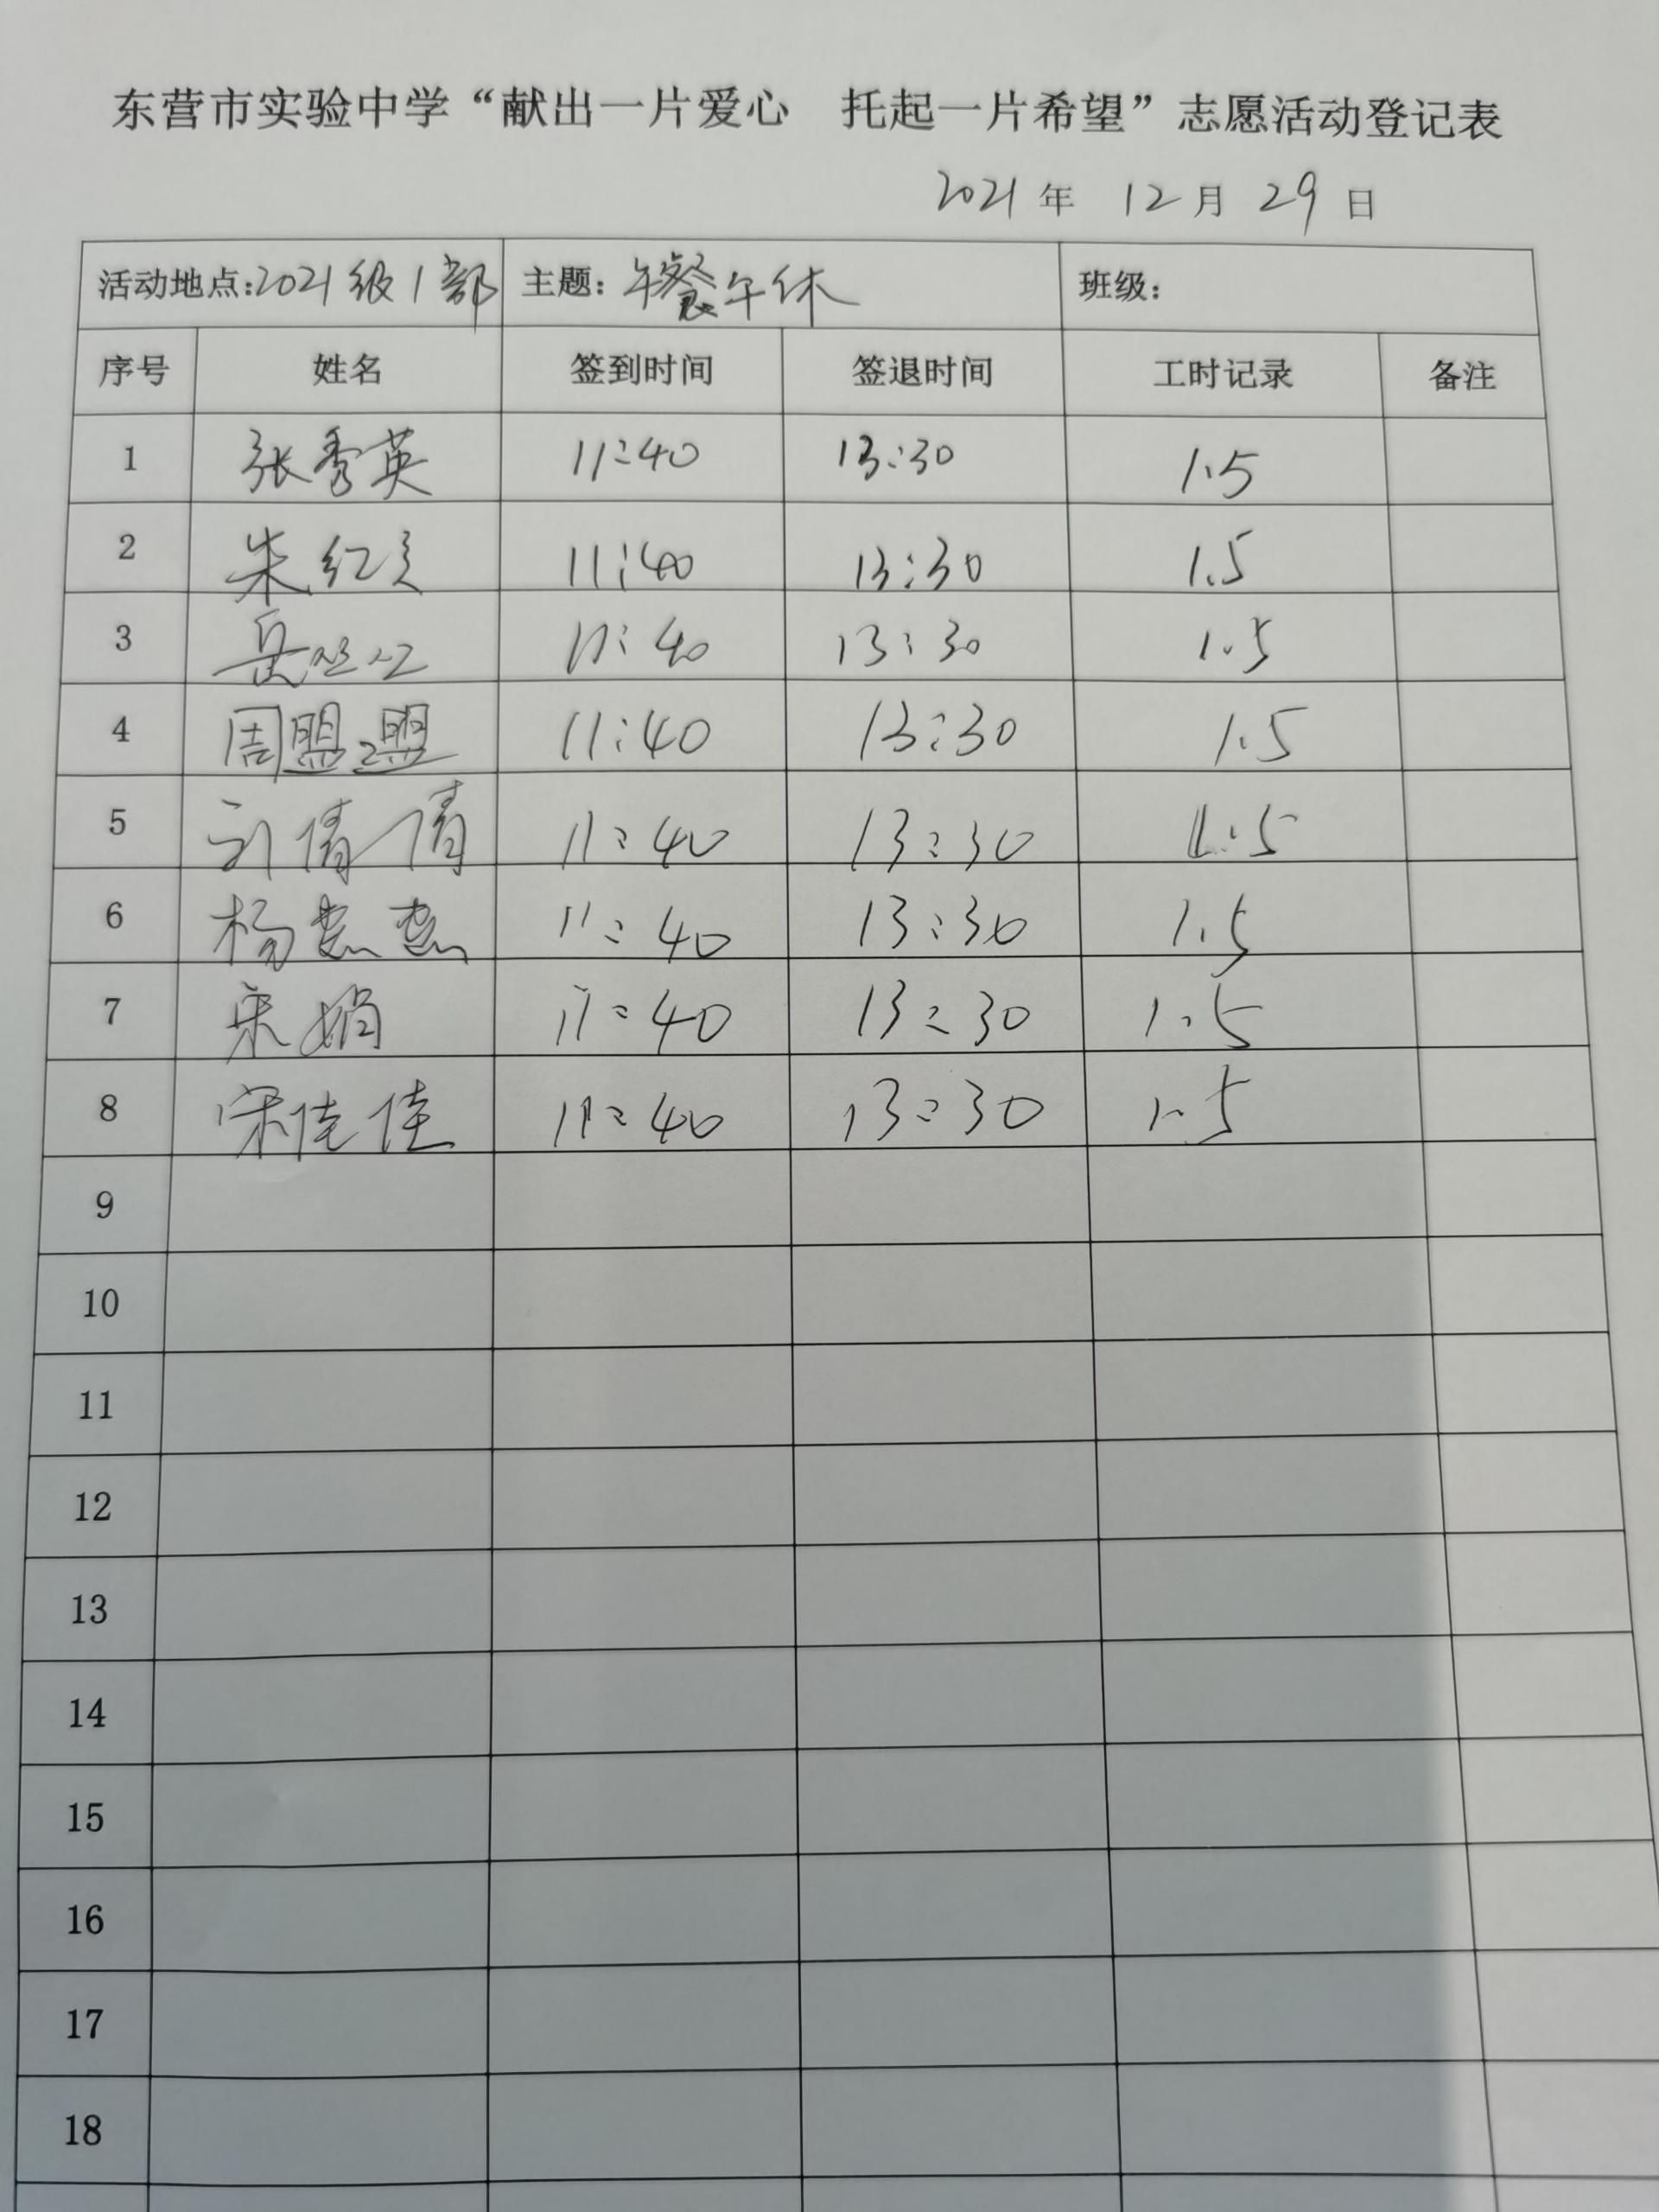 东营市实验中学“献出一片爱心 托起一片希望”志愿活动登记表
2021年 12月 29日
活动地点:2021级1部 主题:午餐午休 班级:
序号 姓名 签到时间 签退时间 工时记录 备注
1 张秀英 11:40 13:30 1.5
2 朱红 11:40 13:30 1.5
3 岳 11:40 13:30 1.5
4 周盟盟 11:40 13:30 1.5
5 刘倩倩 11:40 13:30 1.5
6 杨 11:40 13:30 1.5
7 宋娟 11:40 13:30 1.5
8 宋佳佳 11:40 13:30 1.5
9
10
11
12
13
14
15
16
17
18